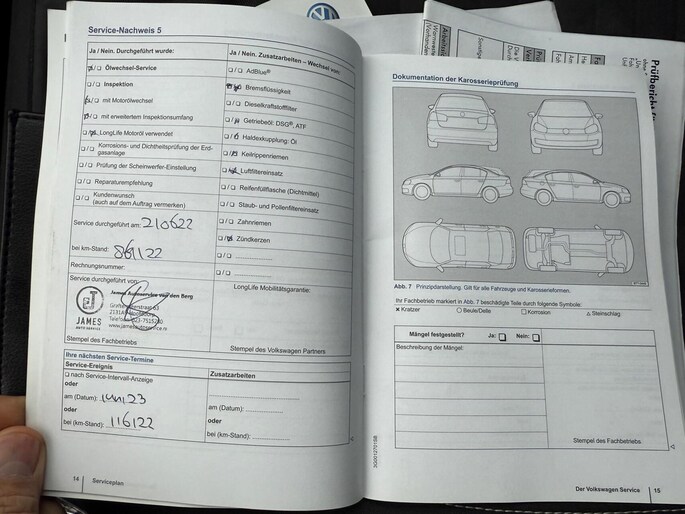 Service-Nachweis 5
Ja / Nein. Durchgeführt wurde:
Ölwechsel-Service
Inspektion
mit Motorölwechsel
mit erweitertem Inspektionsumfang
LongLife Motoröl verwendet
Korrosions- und Dichtheitsprüfung der Erd-
gasanlage
Prüfung der Scheinwerfer-Einstellung
Reparaturempfehlung
Kundenwunsch
(auch auf dem Auftrag vermerken)
Service durchgeführt am: 210622
bei km-Stand: 86122
Rechnungsnummer:
Service durchgeführt von:
JAMES
AUTO SERVICE
James Autoservice van den Berg
Stempel des Fachbetriebs
Ja / Nein. Zusatzarbeiten – Wechsel von:
AdBlue®
Bremsflüssigkeit
Dieselkraftstofffilter
Getriebeöl: DSG®, ATF
Haldexkupplung: Öl
Keilrippenriemen
Luftfiltereinsatz
Reifenfüllflasche (Dichtmittel)
Staub- und Pollenfiltereinsatz
Zahnriemen
Zündkerzen
LongLife Mobilitätsgarantie:
Stempel des Volkswagen Partners
Ihre nächsten Service-Termine
Service-Ereignis
nach Service-Intervall-Anzeige
oder
am (Datum): juni 23
oder
bei (km-Stand): 116122
Zusatzarbeiten
am (Datum):
oder
bei (km-Stand):
14 Serviceplan
Dokumentation der Karosserieprüfung
Abb. 7 Prinzipdarstellung. Gilt für alle Fahrzeuge und Karosserieformen.
Ihr Fachbetrieb markiert in Abb. 7 beschädigte Teile durch folgende Symbole:
Kratzer Beule/Delle Korrosion Steinschlag
Mängel festgestellt? Ja: Nein:
Beschreibung der Mängel:
Stempel des Fachbetriebs
Der Volkswagen Service 15